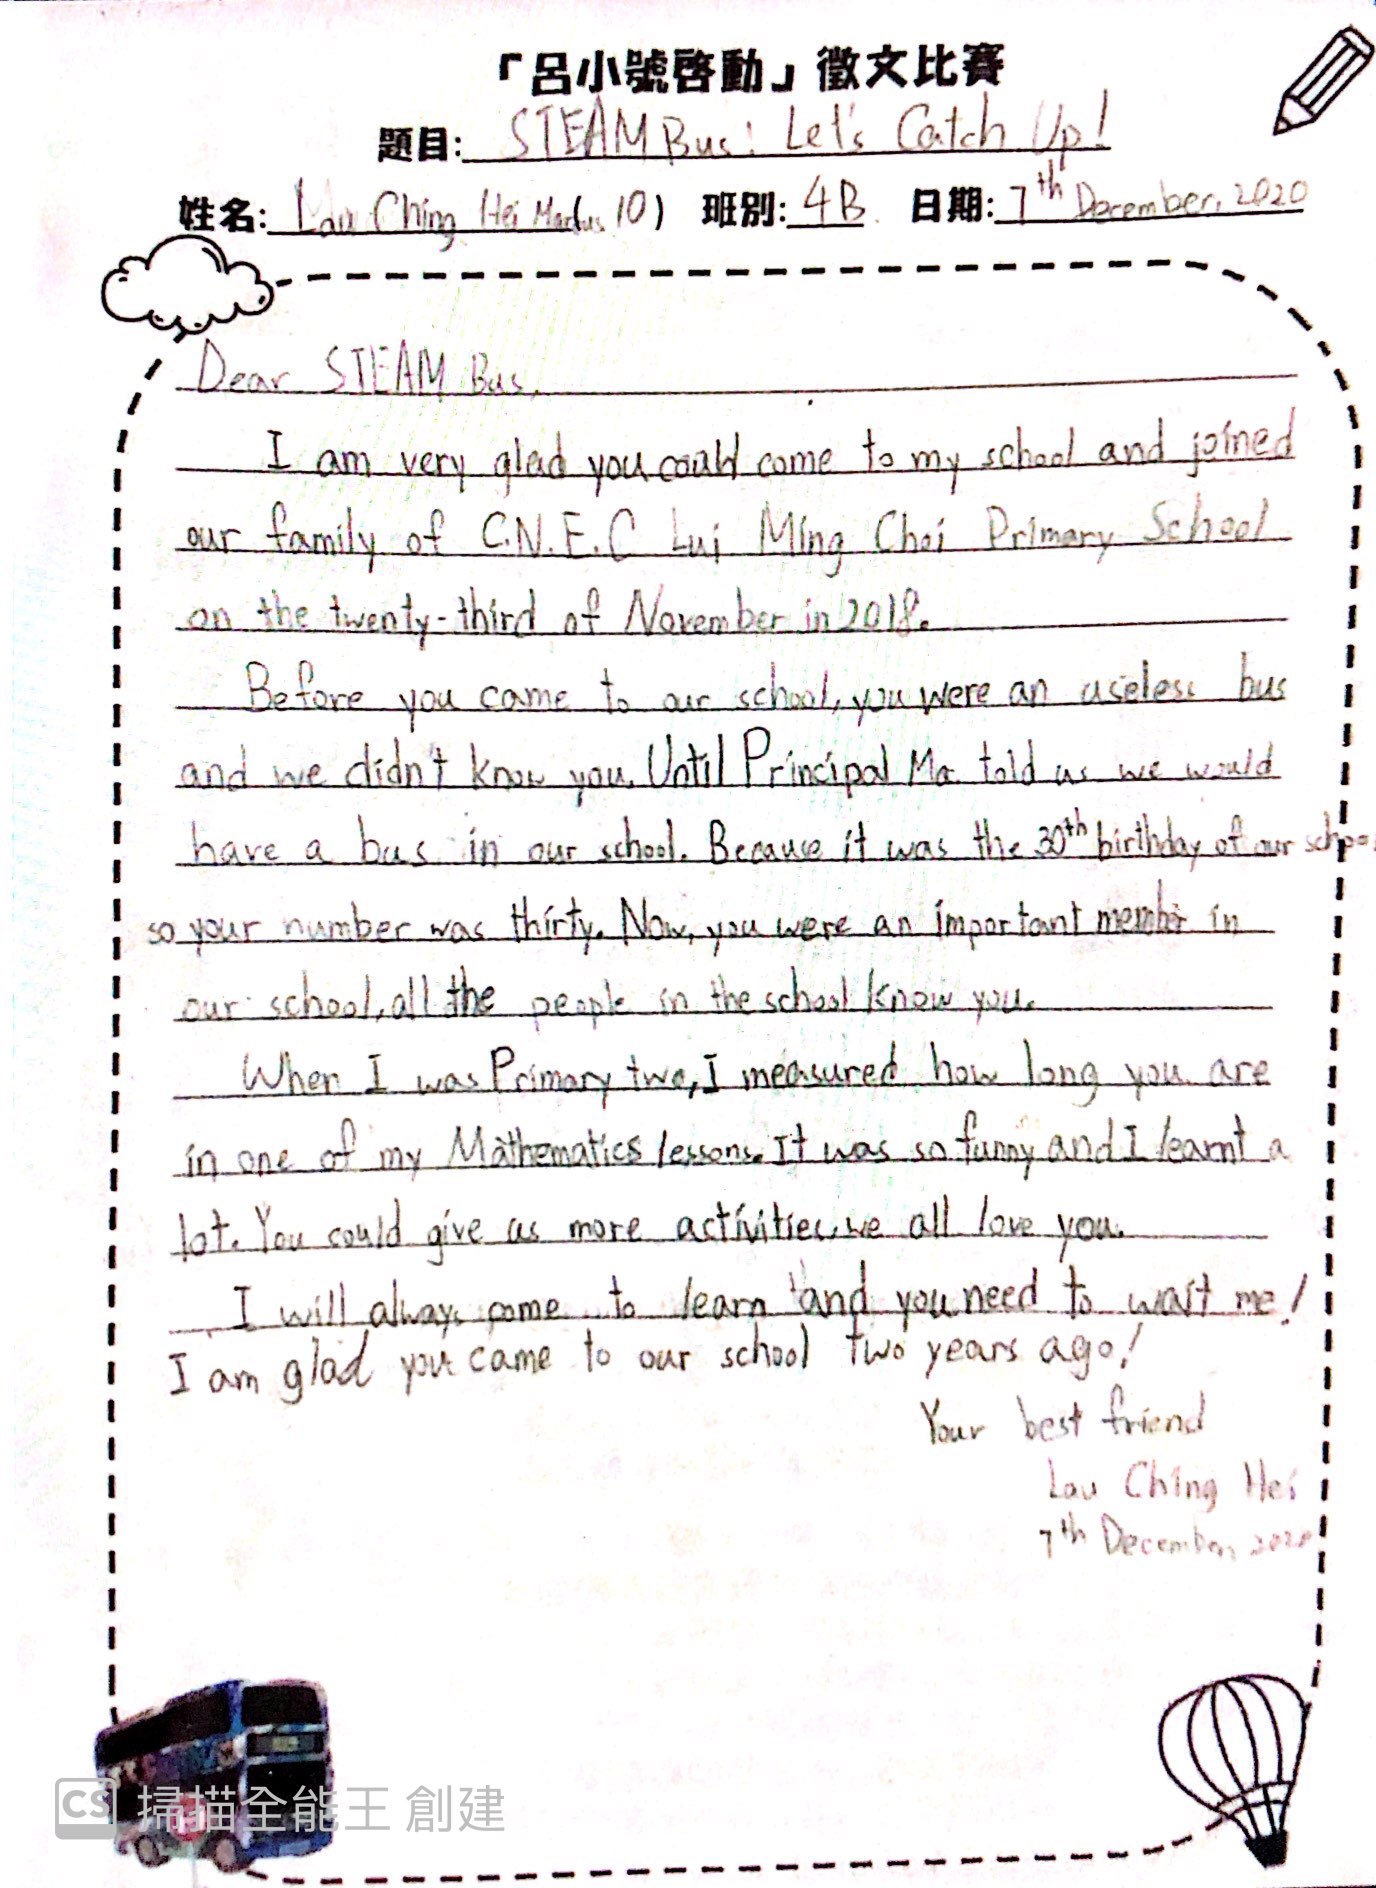 「呂小號啓動」徵文比賽
題目: STEAM Bus: Let's Catch Up!
姓名: Lau Ching Hei Marcus (10) 班別: 4B 日期: 7th December, 2020
Dear STEAM Bus,
I am very glad you could come to my school and joined
our family of C.N.E.C Lui Ming Choi Primary School
on the twenty-third of November in 2018.
Before you came to our school, you were an useless bus
and we didn't know you. Until Principal Ma told us we would
have a bus in our school. Because it was the 30th birthday of our school
so your number was thirty. Now, you were an important member in
our school, all the people in the school know you.
When I was Primary two, I measured how long you are
in one of my Mathematics lessons. It was so funny and I learnt a
lot. You could give us more activities, we all love you.
I will always come to learn and you need to wait me!
I am glad you came to our school two years ago!
Your best friend
Lau Ching Hei
7th December, 2020
CS 掃描全能王 創建